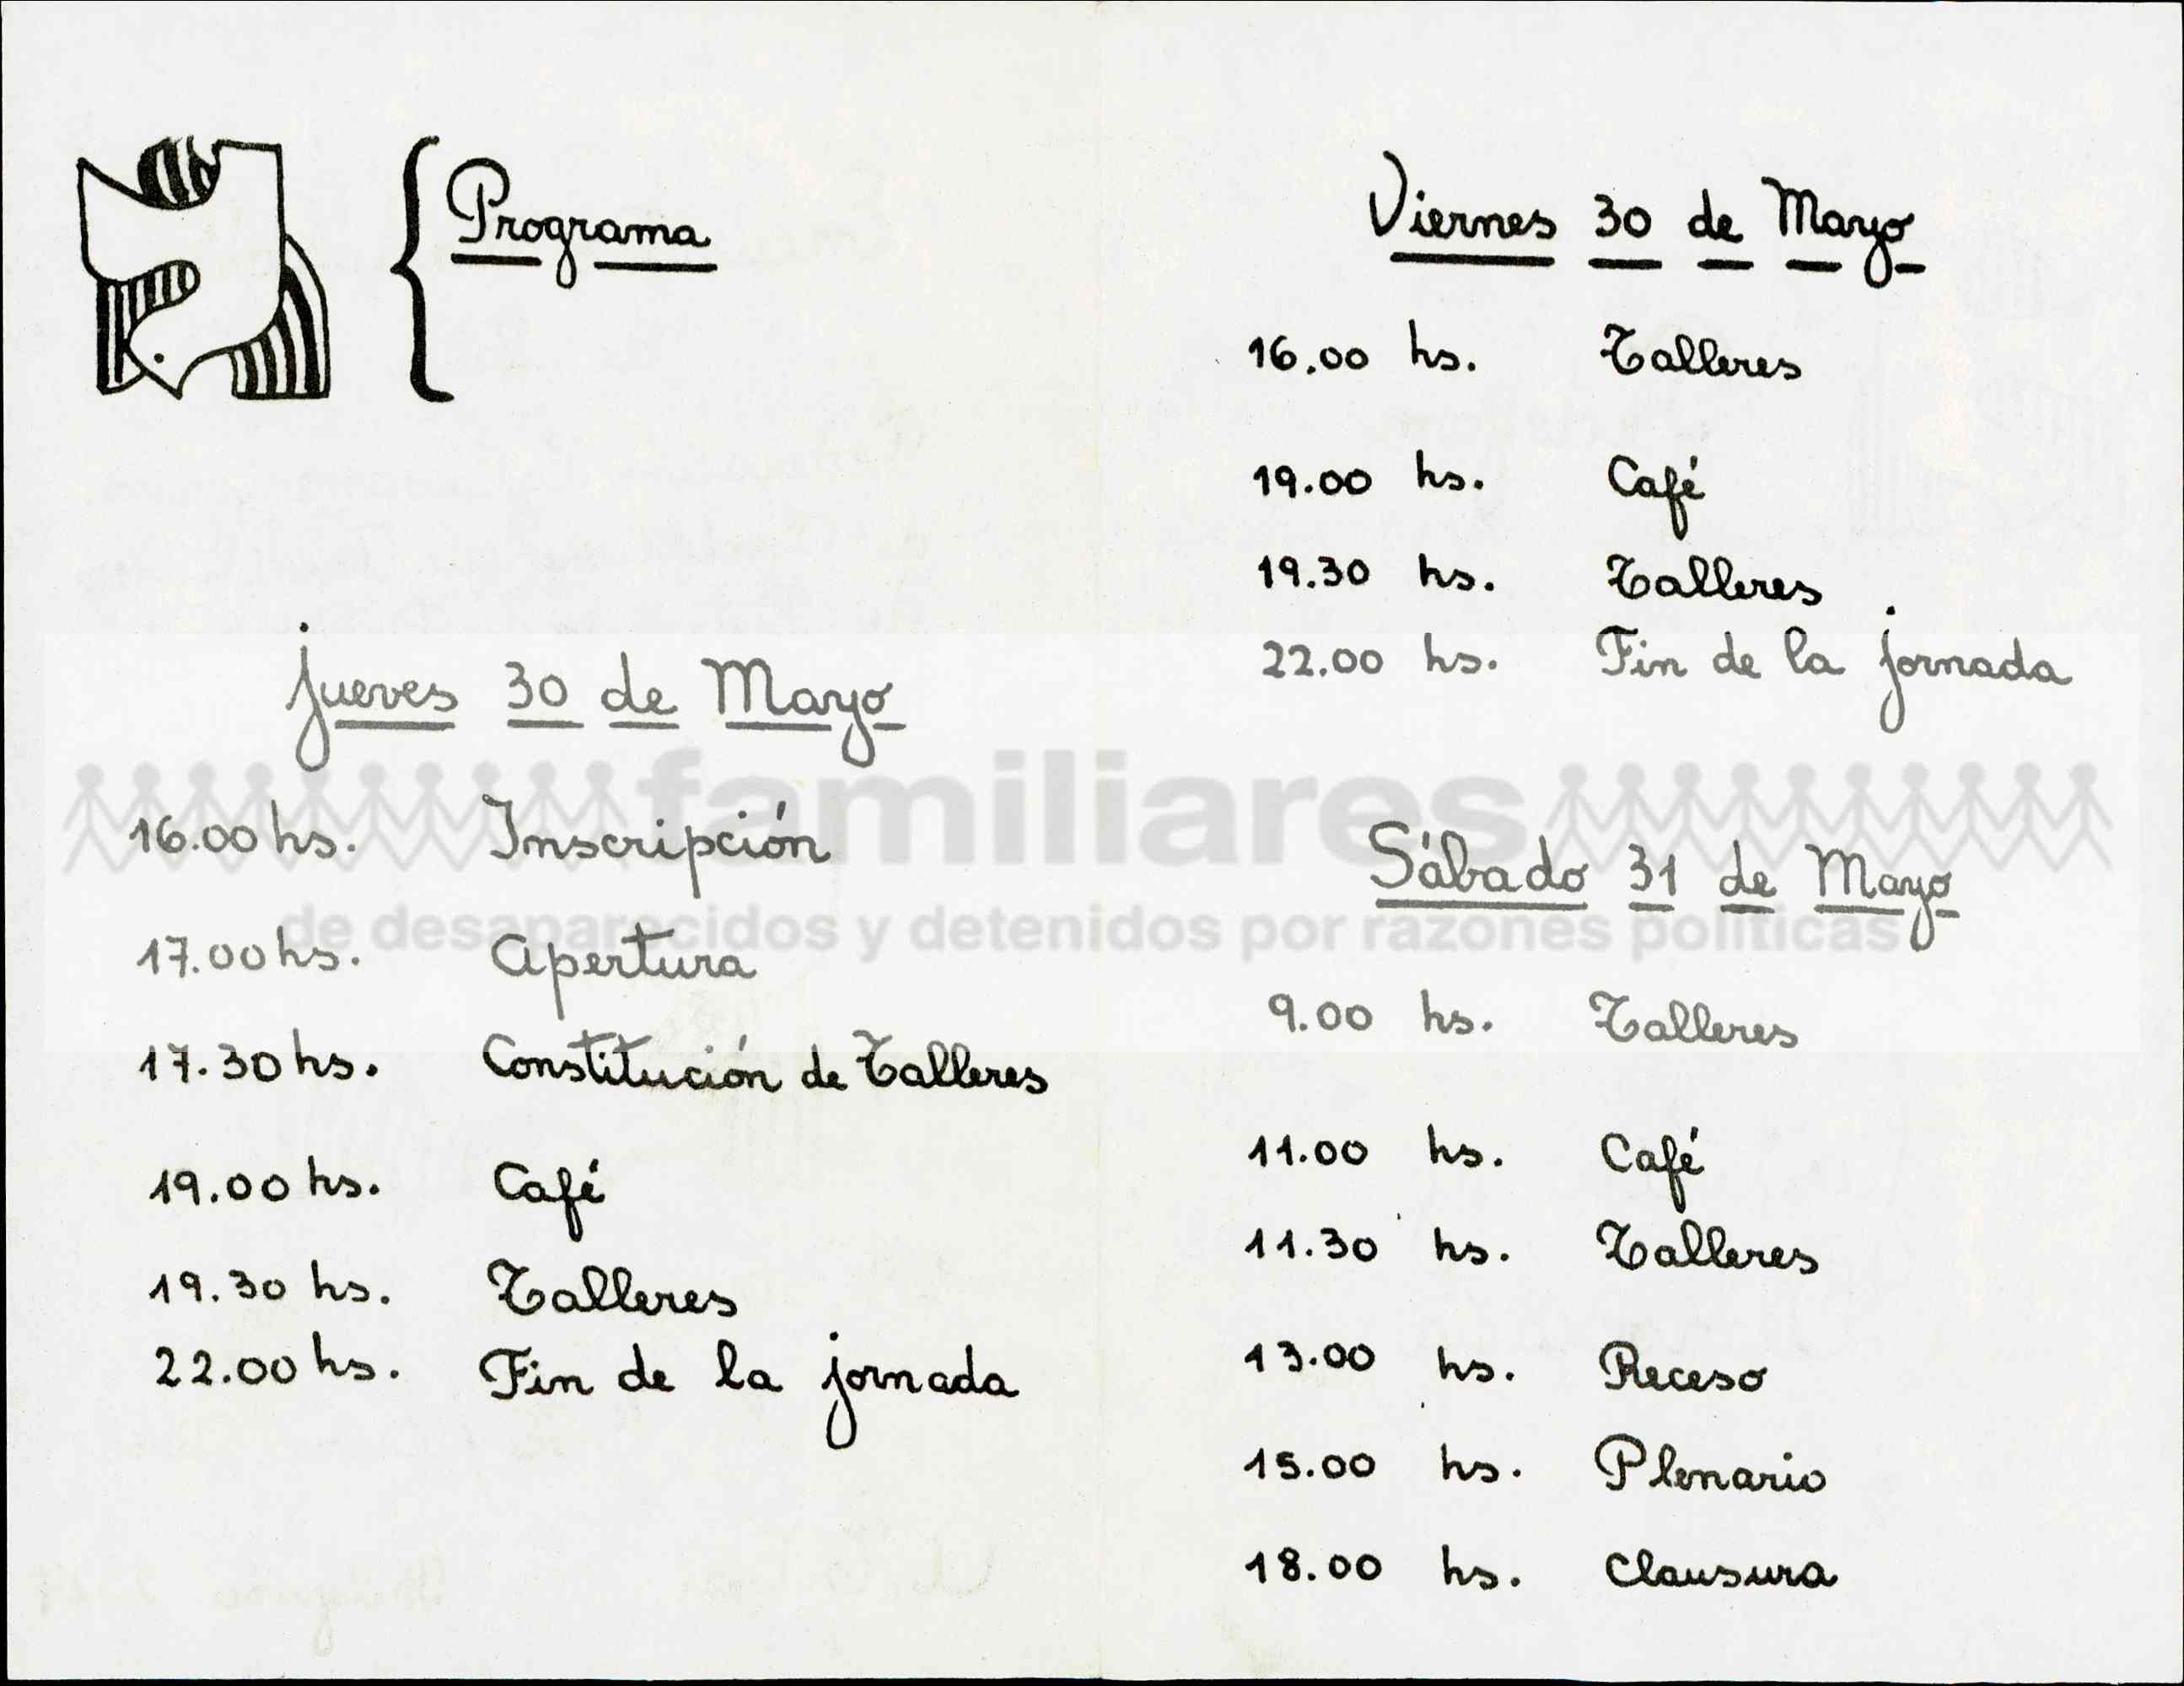 Programa
Jueves 30 de Mayo
16.00 hs. Inscripción
17.00 hs. Apertura
17.30 hs. Constitución de Talleres
19.00 hs. Café
19.30 hs. Talleres
22.00 hs. Fin de la jornada
Viernes 30 de Mayo
16.00 hs. Talleres
19.00 hs. Café
19.30 hs. Talleres
22.00 hs. Fin de la jornada
Sábado 31 de Mayo
9.00 hs. Talleres
11.00 hs. Café
11.30 hs. Talleres
13.00 hs. Receso
15.00 hs. Plenario
18.00 hs. Clausura
familiares
de desaparecidos y detenidos por razones políticas